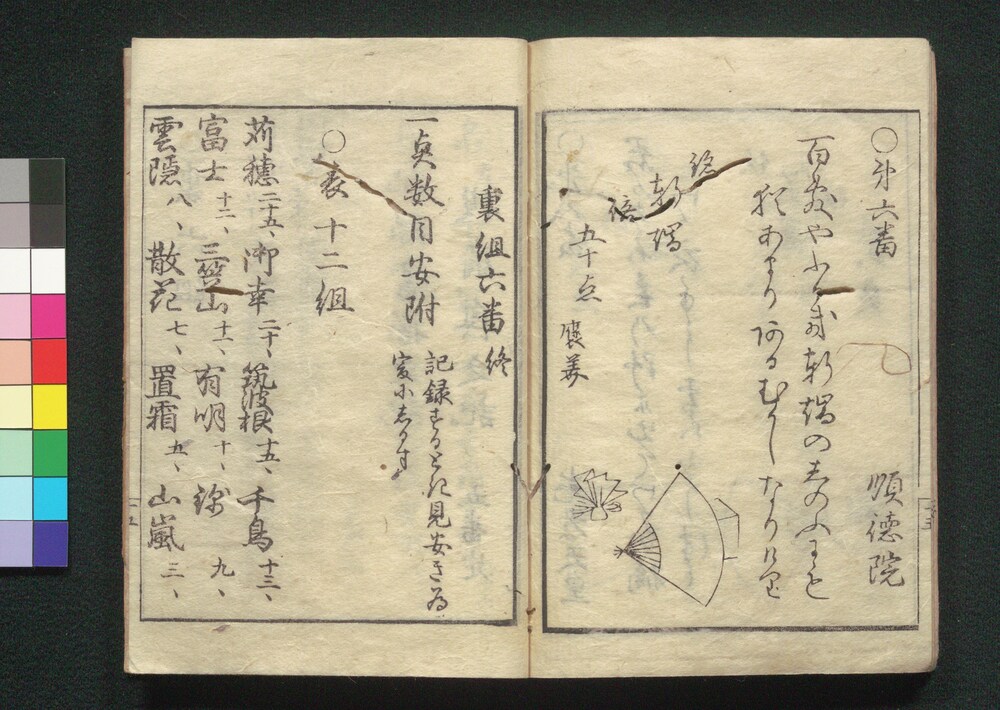 ○ 第六番
順徳院
百敷やふるき軒端の忍ふにも
猶あまりあるむかしなりけり
銘
軒端
倍
五十点
褒美
裏組六番 終
一点数目安附
記録するとき見安き為
爰にしるす
○表十二組
苅穂 二十五、御幸 二十、筑波根 十五、千鳥 十三、
富士 十二、三笠山 十一、有明 十、錦 九、
雲隠 八、散花 七、置霜 五、山嵐 三、